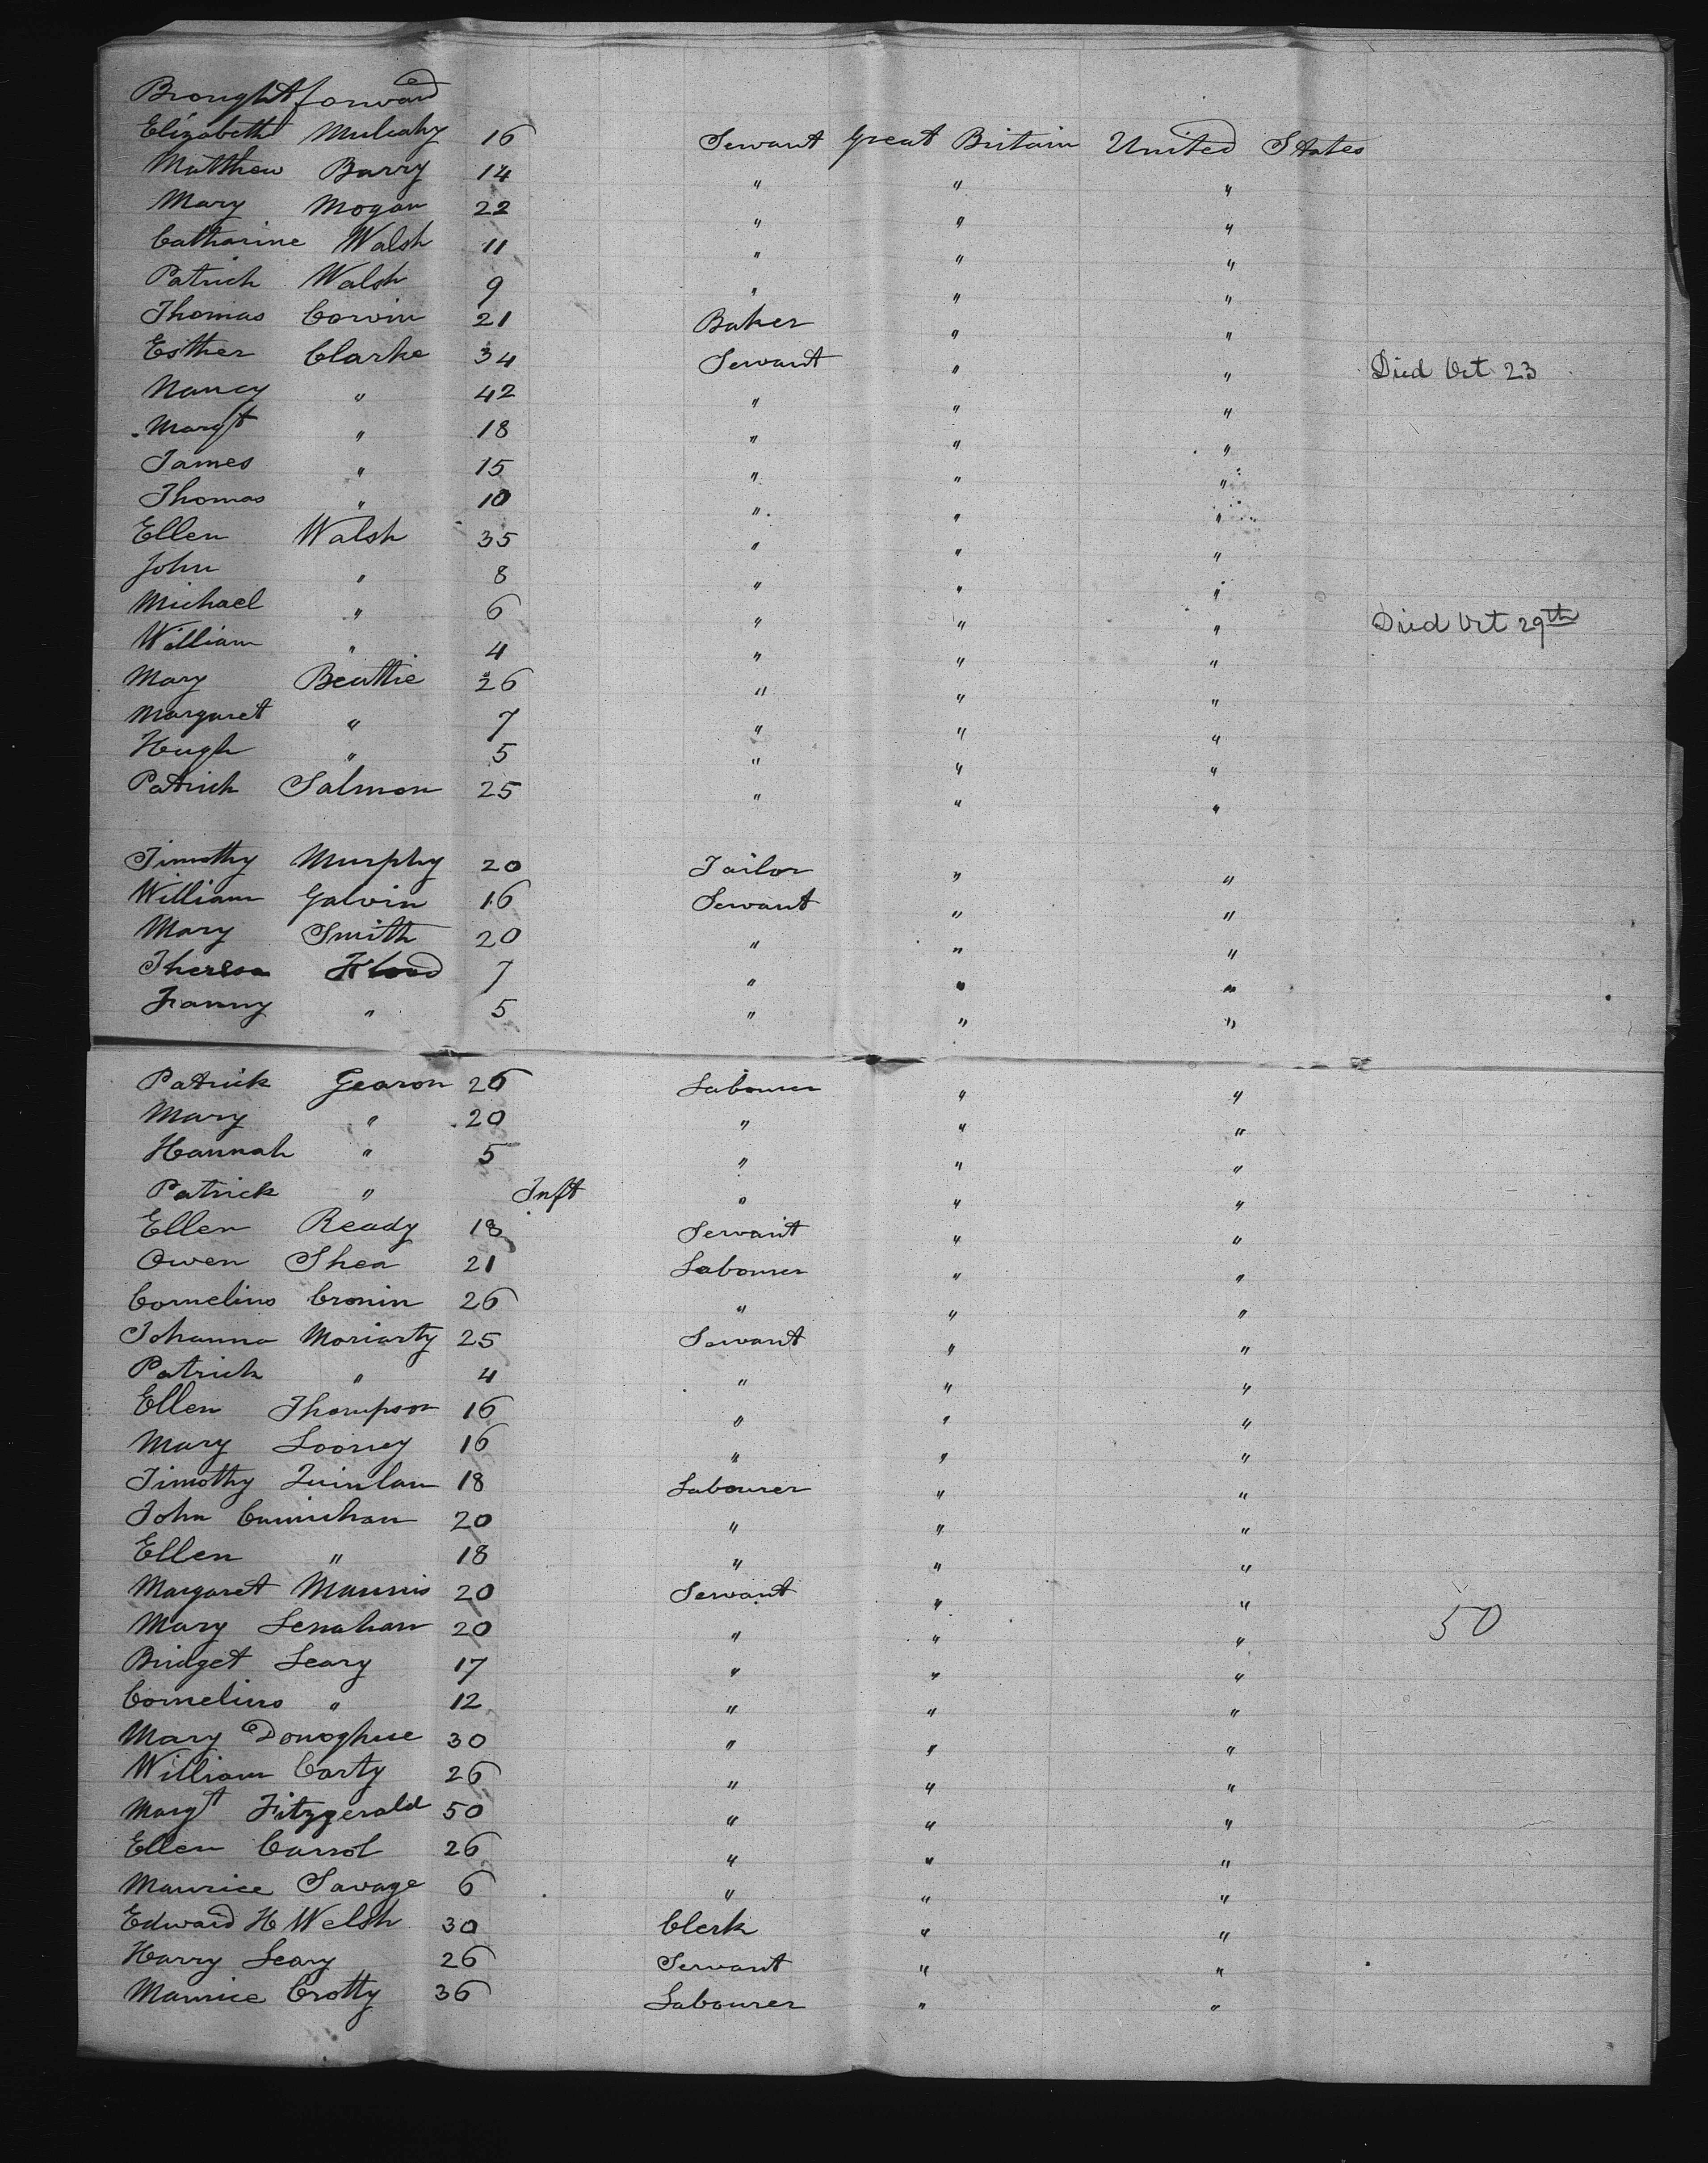 Brought forward
Elizabeth Mulcahy 16 Servant Great Britain United States
Matthew Barry 14 " " "
Mary Mogan 22 " " "
Catharine Walsh 11 " " "
Patrick Walsh 9 " " "
Thomas Corwin 21 Baker " "
Esther Clarke 34 Servant " " Died Oct 23
Nancy " 42 " " "
Margt " 18 " " "
James " 15 " " "
Thomas " 10 " " "
Ellen Walsh 35 " " "
John " 8 " " "
Michael " 6 " " " Died Oct 29th
William " 4 " " "
Mary Beattie 26 " " "
Margaret " 7 " " "
Hugh " 5 " " "
Patrick Salmon 25 " " "
Timothy Murphy 20 Tailor " "
William Galvin 16 Servant " "
Mary Smith 20 " " "
Theresa Flood 7 " " "
Fanny " 5 " " "
Patrick Gearon 26 Labourer " "
Mary " 20 " " "
Hannah " 5 " " "
Patrick " Inft " " "
Ellen Ready 18 Servant " "
Owen Shea 21 Labourer " "
Cornelius Cronin 26 " " "
Johanna Moriarty 25 Servant " "
Patrick " 4 " " "
Ellen Thompson 16 " " "
Mary Looney 16 " " "
Timothy Quinlan 18 Labourer " "
John 20 " " "
Ellen " 18 " " "
Margaret 20 Servant " "
Mary Lenahan 20 " " " 50
Bridget Leary 17 " " "
Cornelius " 12 " " "
Mary Donoghue 30 " " "
William Carty 26 " " "
Margt Fitzgerald 50 " " "
Ellen Carrol 26 " " "
Maurice Savage 6 " " "
Edward H Welsh 30 Clerk " "
Harry Leary 26 Servant " "
Maurice Crotty 36 Labourer " "